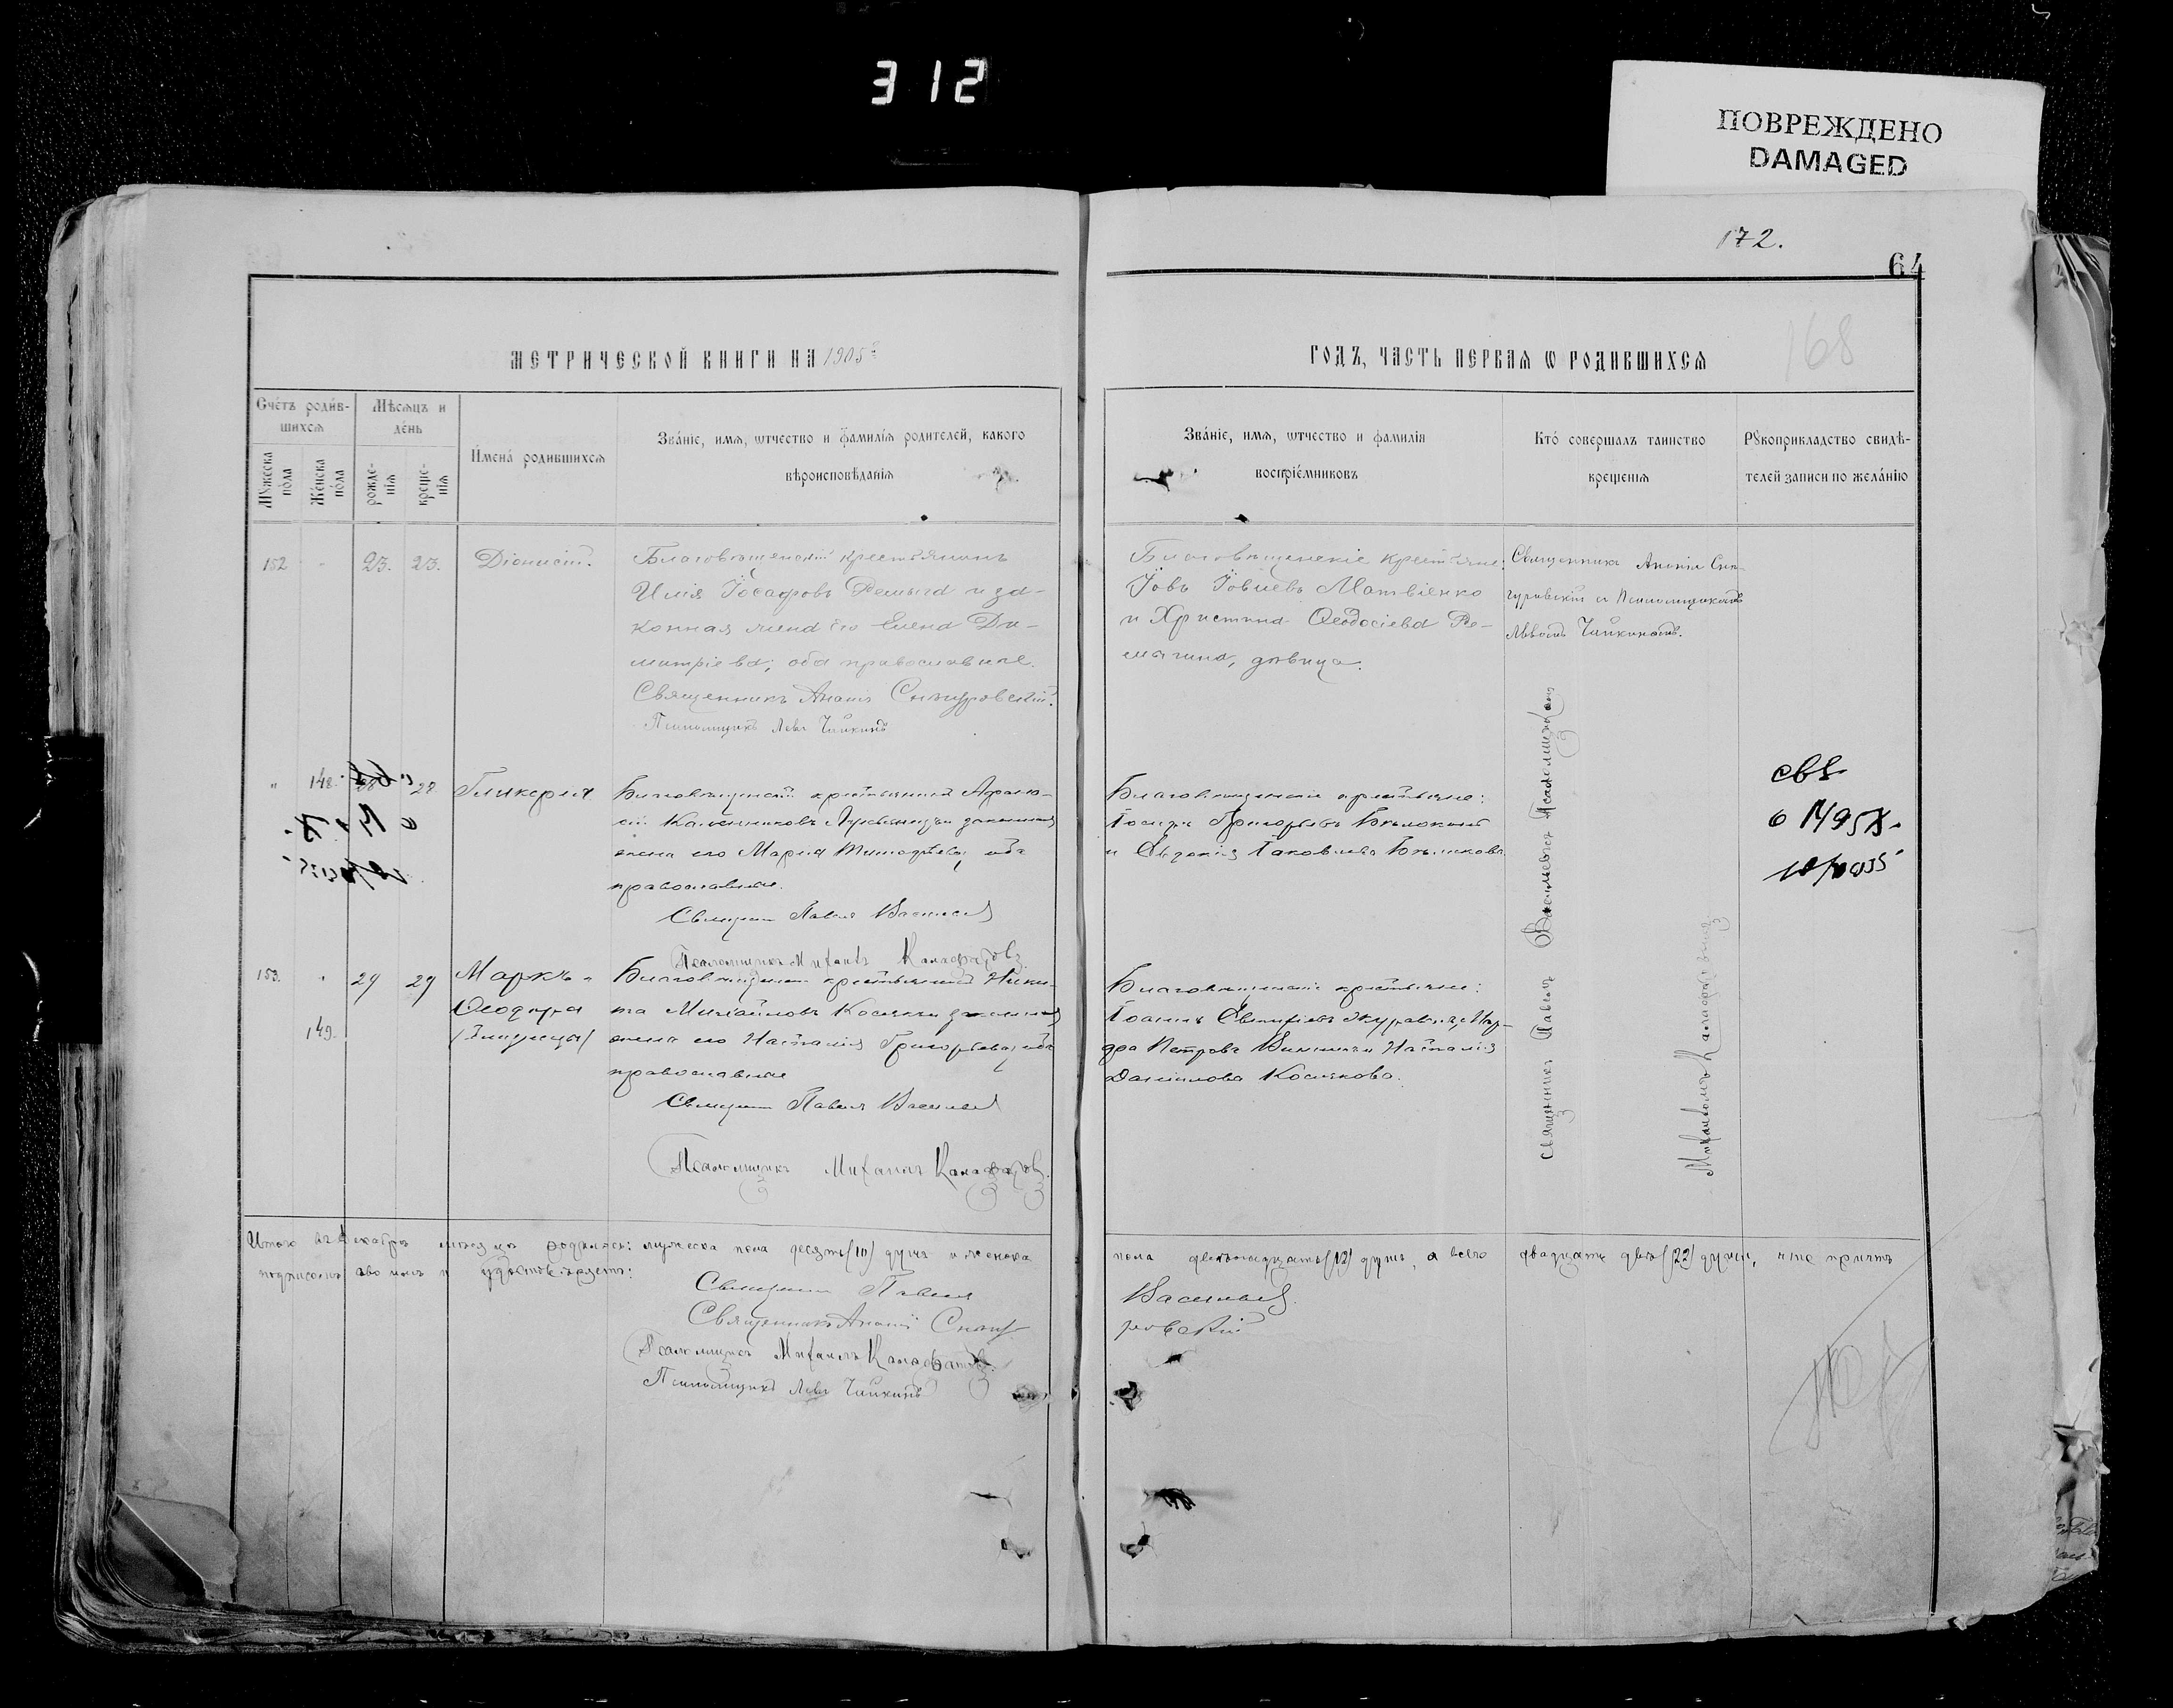 312
ПОВРЕЖДЕНО
DAMAGED
172.
64
168
МЕТРИЧЕСКОЙ КНИГИ НА 1905 г.
ГОДЪ, ЧАСТЬ ПЕРВАЯ Ѡ РОДИВШИХСЯ
Счетъ родив-
шихся
Мѣсяцъ и
день
Мужеска
пола
Женска
пола
рожде-
нія
креще-
нія
Имена родившихся
Званіе, имя, ѡтчество и фамилія родителей, какого
вѣроисповѣданія
Званіе, имя, ѡтчество и фамилія
воспріемниковъ
Кто совершалъ таинство
крещенія
Рукоприкладство свидѣ-
телей записи по желанію
152 " 23. 23. Діонисій.
Благовѣщенскій крестьянинъ
Илія Іоасафовъ Ремыга и за-
конная жена его Елена Ди-
митріева; оба православные.
Священникъ Ананія Снѣгуровскій.
Псаломщикъ Левъ Чайкинъ
Благовѣщенскіе крестьяне:
Іовъ Іовлевъ Матвіенко
и Христина Ѳеодосіева Ре-
мыгина, дѣвица.
Священникъ Ананія Снѣ-
гуровскій съ Псаломщикомъ
Львомъ Чайкинымъ.
" 148. 28 Гликерія
Благовѣщенскій крестьянинъ Афана-
сій и законная
жена его Марія Тимофѣева, оба
православные.
Священникъ Павелъ Васильевъ
Псаломщикъ Михаилъ Калафатовъ
Благовѣщенскіе крестьяне:
Іосифъ Григорьевъ
и Евдокія Яковлева
свѣ
10/X 935
153. " 29 29 Маркъ и
149. Ѳеодора
(близнецы)
Благовѣщенскій крестьянинъ Ники-
та Михайловъ Косяк и законная
жена его Наталія Григорьева, оба
православные
Священникъ Павелъ Васильевъ
Псаломщикъ Михаилъ Калафатовъ.
Благовѣщенскіе крестьяне:
Іоаннъ Журавель,
Петрова и Наталія
Даніилова Косякова.
Священникъ Павелъ Васильевъ Псаломщикомъ
Михаиломъ Калафатовымъ
Итого въ декабрѣ мѣсяцѣ родилось: мужеска пола десять (10) душъ и женска пола двѣнадцать (12) душъ, а всего двадцать двѣ (22) души, что причтъ
подписомъ своимъ и удостовѣряетъ:
Священникъ Павелъ Васильевъ
Священникъ Ананій Снѣгуровскій
Псаломщикъ Михаилъ Калафатовъ.
Псаломщикъ Левъ Чайкинъ